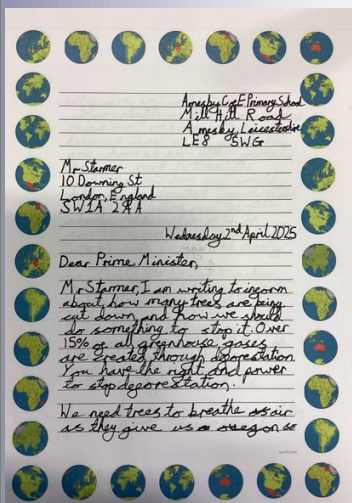 Arnesby CofE Primary School
Mill Hill Road
Arnesby, Leicestershire
LE8 5WG
Mr Starmer
10 Downing St
London, England
SW1A 2AA
Wednesday 2nd April 2025
Dear Prime Minister,
Mr Starmer, I am writing to inform
about how many trees are being
cut down and how we should
do something to stop it. Over
15% of all greenhouse gases
are created through deforestation.
You have the right and power
to stop deforestation.
We need trees to breathe air
as they give us so